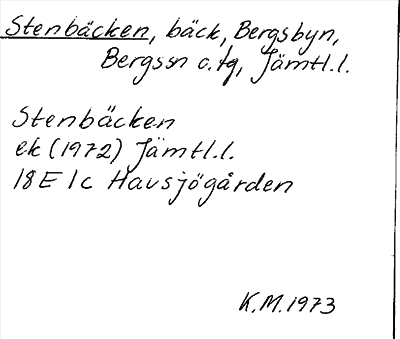 Stenbäcken, bäck, Bergsbyn,
Bergssn o.tg, Jämtl.l.
Stenbäcken
ek (1972) Jämtl.l.
18E 1c Havsjögården
K.M. 1973